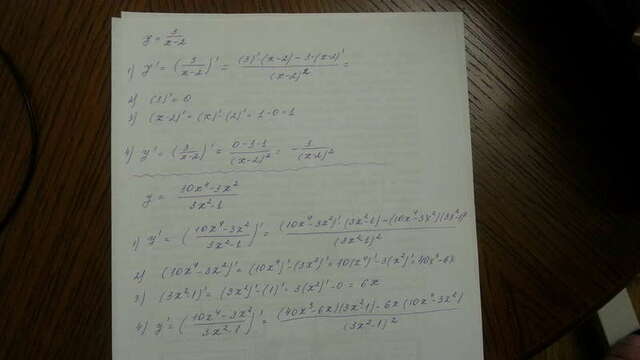 y = 3/(x-2)
1) y' = (3/(x-2))' = ((3)'·(x-2)-3·(x-2)')/(x-2)² =
2) (3)' = 0
3) (x-2)' = (x)'-(2)' = 1-0 = 1
4) y' = (3/(x-2))' = (0-3·1)/(x-2)² = -3/(x-2)²
y = (10x⁴-3x²)/(3x²-1)
1) y' = ((10x⁴-3x²)/(3x²-1))' = ((10x⁴-3x²)'·(3x²-1)-(10x⁴-3x²)(3x²-1)')/(3x²-1)²
2) (10x⁴-3x²)' = (10x⁴)'-(3x²)' = 10(x⁴)'-3(x²)' = 40x³-6x
3) (3x²-1)' = (3x²)'-(1)' = 3(x²)'-0 = 6x
4) y' = ((10x⁴-3x²)/(3x²-1))' = ((40x³-6x)(3x²-1)-6x(10x⁴-3x²))/(3x²-1)²